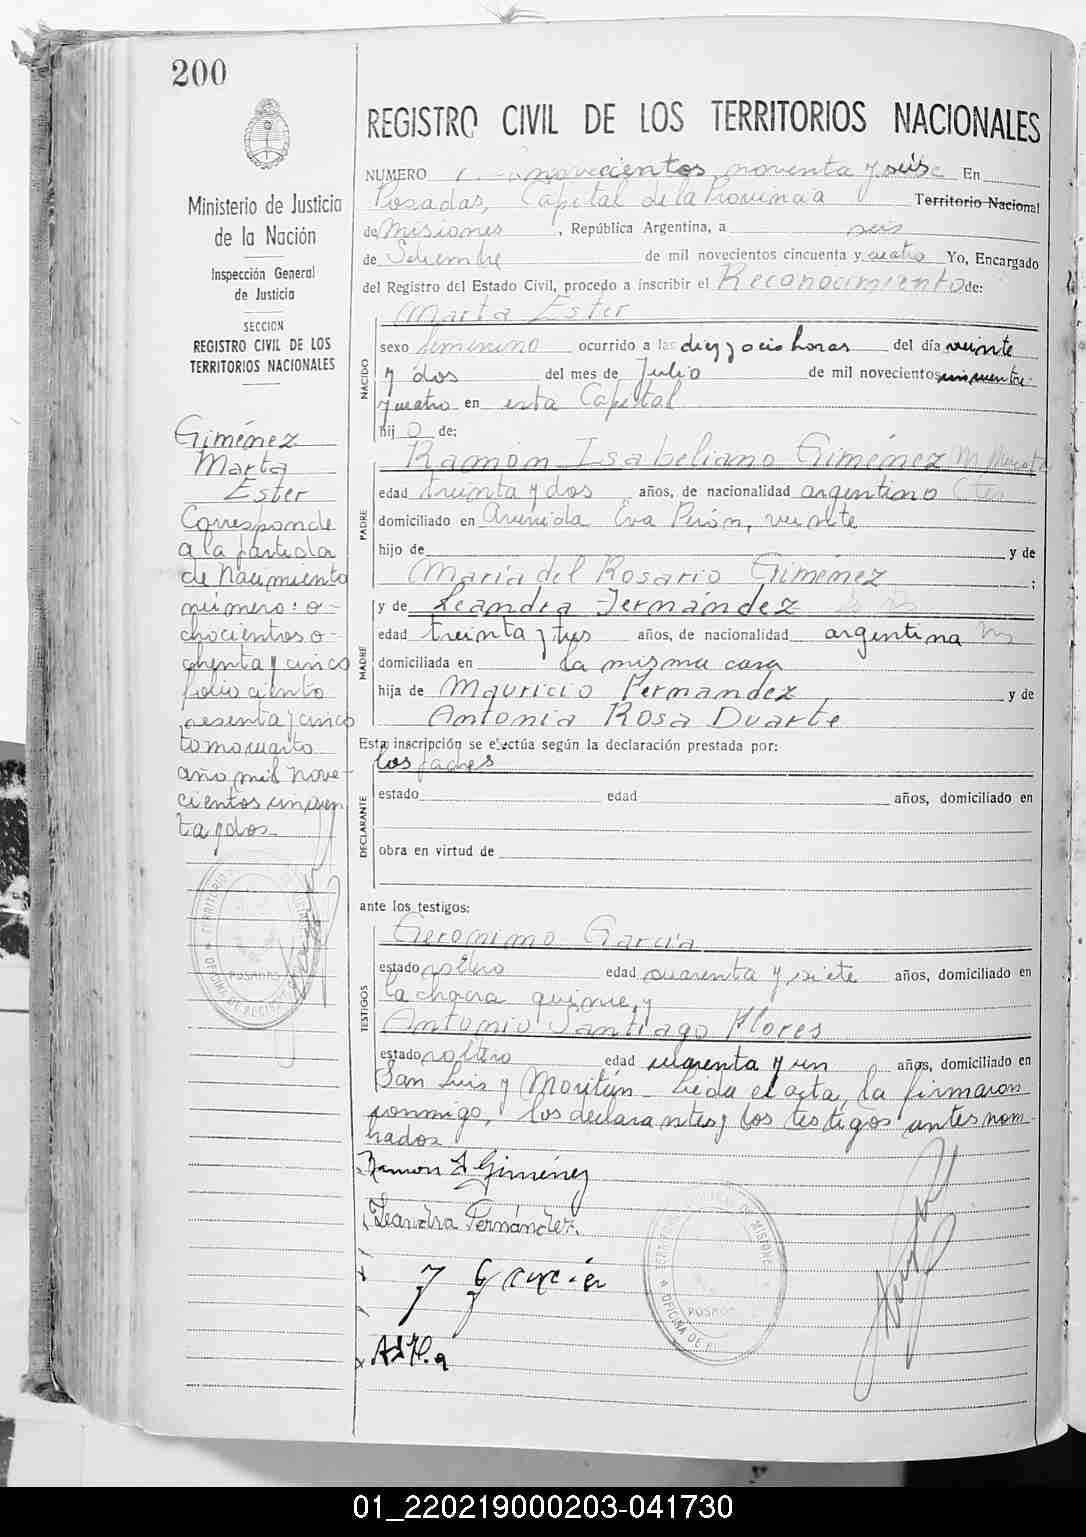 200
REGISTRO CIVIL DE LOS TERRITORIOS NACIONALES
Ministerio de Justicia
de la Nación
Inspección General
de Justicia
SECCION
REGISTRO CIVIL DE LOS
TERRITORIOS NACIONALES
Giménez
Marta
Ester
Corresponde
a la partida
de Nacimiento
número: o-
chocientos o-
chenta y cinco
folio ciento
sesenta y cinco
tomo cuarto
año mil nove-
cientos cincuen
ta y dos
NUMERO novecientos noventa y seis En
Posadas, Capital de la Provincia Territorio Nacional
de Misiones, República Argentina, a seis
de Setiembre de mil novecientos cincuenta y cuatro Yo, Encargado
del Registro del Estado Civil, procedo a inscribir el Reconocimiento de:
Marta Ester
NACIDO
sexo femenino ocurrido a las diez y ocio horas del día veinte
y dos del mes de Julio de mil novecientos cincuenta
y cuatro en esta Capital
hij o de:
Ramón Isabeliano Giménez
PADRE
edad treinta y dos años, de nacionalidad argentino
domiciliado en Avenida Eva Perón, veinte
hijo de y de
María del Rosario Giménez ;
y de Leandra Fernández
MADRE
edad treinta y tres años, de nacionalidad argentina
domiciliada en la misma casa
hija de Mauricio Fernandez y de
Antonia Rosa Duarte
Esta inscripción se efectúa según la declaración prestada por:
los padres
DECLARANTE
estado edad años, domiciliado en
obra en virtud de
ante los testigos:
Geronimo García
TESTIGOS
estado soltero edad cuarenta y siete años, domiciliado en
la chacra quince, y
Antonio Santiago Flores
estado soltero edad cuarenta y un años, domiciliado en
San Luis y Moritán - Leída el acta, la firmaron
conmigo, los declarantes y los testigos antes nom-
brados
Ramon I Giménez
Leandra Fernández.
J Garcia
POSADAS
01_220219000203-041730